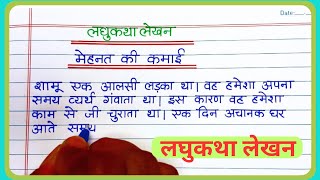 Date:
लघुकथा लेखन
मेहनत की कमाई
शामू एक आलसी लड़का था। वह हमेशा अपना
समय व्यर्थ गंवाता था। इस कारण वह हमेशा
काम से जी चुराता था। एक दिन अचानक घर
आते समय
लघुकथा लेखन